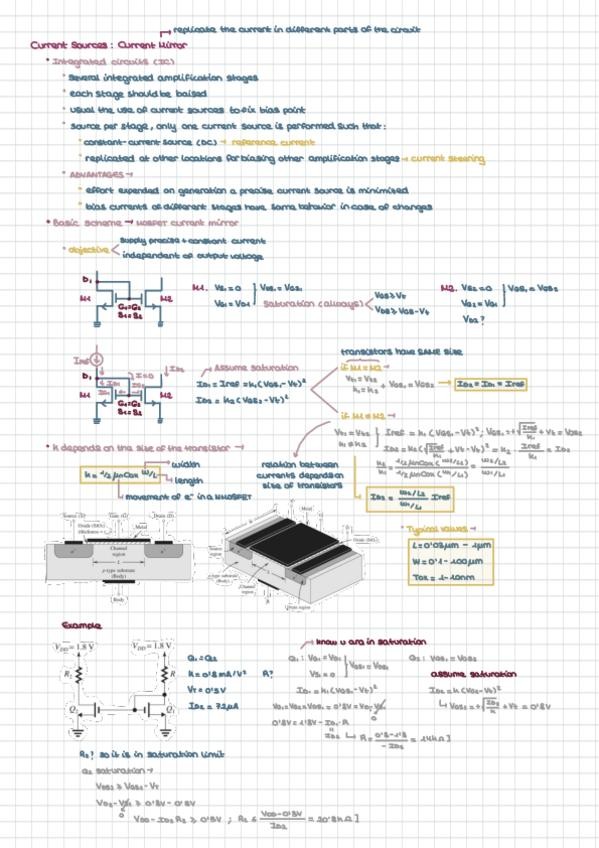 replicate the current in different parts of the circuit
Current Sources: Current Mirror
• Integrated circuits (IC)
• several integrated amplification stages
• each stage should be baised
• usual the use of current sources to fix bias point
• source per stage, only one current source is performed such that:
• constant-current source (DC) → reference current
• replicated at other locations for biasing other amplification stages → current steering
• ADVANTAGES →
• effort expended on generation a precise current source is minimited
• bias currents of different stages have same behavior in case of changes
• Basic scheme → MOSFET current mirror
• objective
supply precise + constant current
independent of output voltage
D1
M1 G1=G2 S1=S2 M2
M1. VS1=0 VG1=VD1 } VDS1=VGS1
Saturation (always)
VGS≥Vt
VDS≥VGS-Vt
M2. VS2=0 VG2=VG1 } VGS1=VGS2
VD2?
Iref
D1
I=0
M1 G1=G2 S1=S2 M2
Assume saturation
ID1=Iref=k1(VGS1-Vt)²
ID2=k2(VGS2-Vt)²
transistors have SAME size
if M1=M2 →
Vt1=Vt2
k1=k2
+ VGS1=VGS2 → ID2=ID1=Iref
if M1≠M2 →
Vt1=Vt2
k1≠k2
} Iref=k1(VGS1-Vt)²; VGS1=+√Iref/k1+Vt=VGS2
ID2=k2(√Iref/k1+Vt-Vt)²=k2·Iref/k1=ID2
k2/k1=1/2 μnCox(W2/L2)/1/2 μnCox(W1/L1)=W2/L2/W1/L1
ID2=W2/L2/W1/L1 Iref
• k depends on the size of the transistor →
k=1/2 μnCox W/L
width
length
movement of e⁻ in a NMOSFET
relation between
currents depends on
size of transistors
Source (S) Gate (G) Drain (D)
Metal
Channel
region
L
p-type substrate
(Body)
Body
Metal
Source
region
p-type substrate
(Body)
Channel
region
Drain region
• Typical values →
L=0'03μm - 1μm
W=0'1 - 100μm
Tox=1-10nm
Example
VDD=1.8 V
VDD=1.8 V
R2
R
Q2
Q1
Q1=Q2
k=0'8mA/V²
Vt=0'5V
ID2=72μA
R?
know u are in saturation
Q1: VG1=VD1
VS1=0
} VGS1=VDS1
ID1=k1(VGS1-Vt)²
0'8V=1'8V-ID1·R
Q2: VGS1=VGS2
assume saturation
ID2=k2(VGS2-Vt)²
VGS2=+√ID2/k+Vt=0'8V
R2? so it is in saturation limit
Q2 saturation →
VDS2≥VGS2-Vt
VDD-ID2R2≥0'3V;